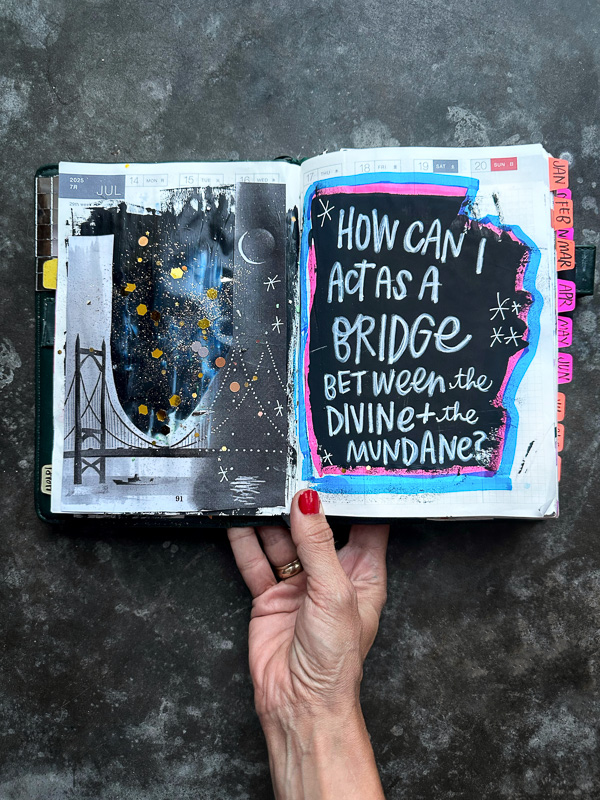 2025
JUL
14 MON
15 TUE
16 WED
17
18 FRI
19 SAT
20 SUN
HOW CAN I
ACT AS A
BRIDGE
BETWEEN the
DIVINE + the
MUNDANE?
91
HELP!
JAN
FEB
MAR
APR
MAY
JUN